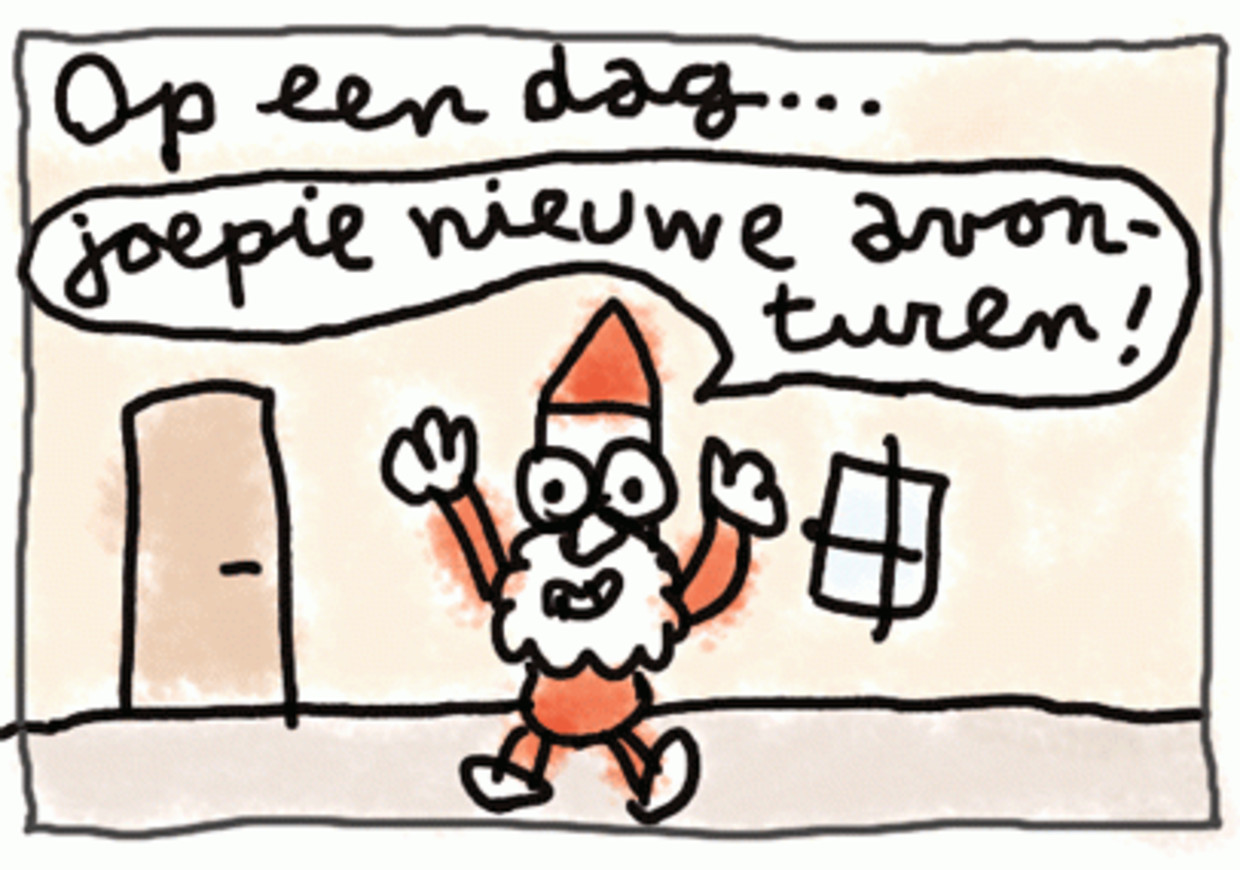 Op een dag....
joepie nieuwe avon-
turen!